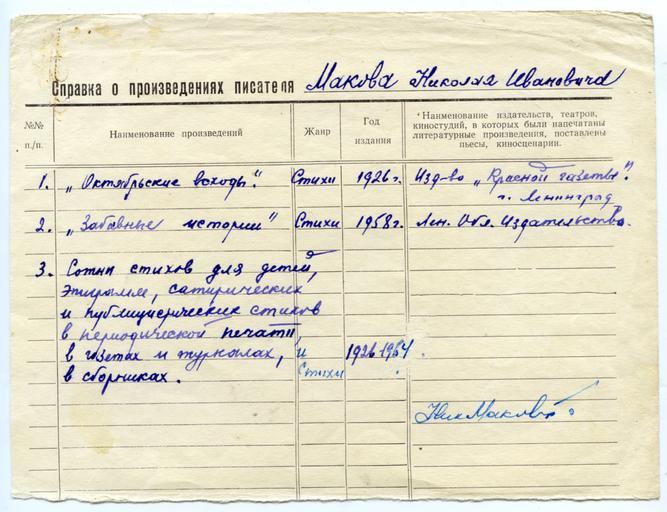 Справка о произведениях писателя Макова Николая Ивановича
№№ п./п.
Наименование произведений
Жанр
Год издания
Наименование издательств, театров, киностудий, в которых были напечатаны литературные произведения, поставлены пьесы, киносценарии.
1. „Октябрьские всходы." Стихи 1926 г. Изд-во „Красной газеты".
г. Ленинград
2. „Забавные истории" Стихи 1958 г. Лен. Обл. Издательство.
3. Сотни стихов для детей,
эпиграмм, сатирических
и публицистических стихов
в периодической печати,
в газетах и журналах, и 1926-1964.
в сборниках. Стихи
Ник Маков